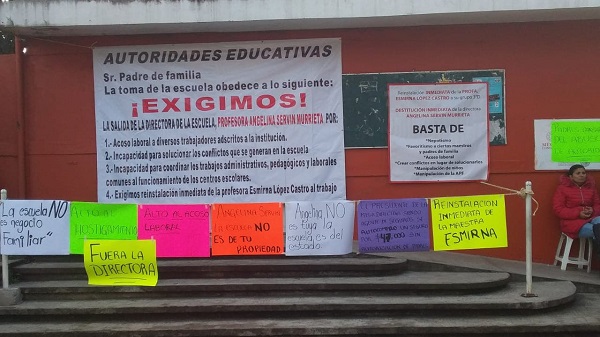 AUTORIDADES EDUCATIVAS
Sr. Padre de familia
La toma de la escuela obedece a lo siguiente:
¡EXIGIMOS!
LA SALIDA DE LA DIRECTORA DE LA ESCUELA, PROFESORA ANGELINA SERVIN MURRIETA POR:
1.- Acoso laboral a diversos trabajadores adscritos a la institución.
2.- Incapacidad para solucionar los conflictos que se generan en la escuela
3.- Incapacidad para coordinar los trabajos administrativos, pedagógicos y laborales
comunes al funcionamiento de los centros escolares.
4.- Exigimos reinstalación inmediata de la profesora Esmirna López Castro al trabajo
Reinstalación INMEDIATA de la PROFA.
ESMIRNA LÓPEZ CASTRO a su grupo 3°D
DESTITUCIÓN INMEDIATA de la directora
ANGELINA SERVIN MURRIETA
BASTA DE
*Nepotismo
*Favoritismo a ciertos maestros
y padres de familia
*Acoso laboral
*Crear conflictos en lugar de solucionarlos
*Manipulación de niños
*Manipulación de la APF
La escuela NO
es negocio
"Familiar"
ALTO AL
HOSTIGAMIENTO
ALTO AL ACOSO
LABORAL
ANGELINA SERVIN
LA ESCUELA NO
ES DE TU
PROPIEDAD
Angelina NO
es tuya la
escuela, es del
estado
REINSTALACIÓN
INMEDIATA DE
LA MAESTRA
ESMIRNA
FUERA LA
DIRECTORA